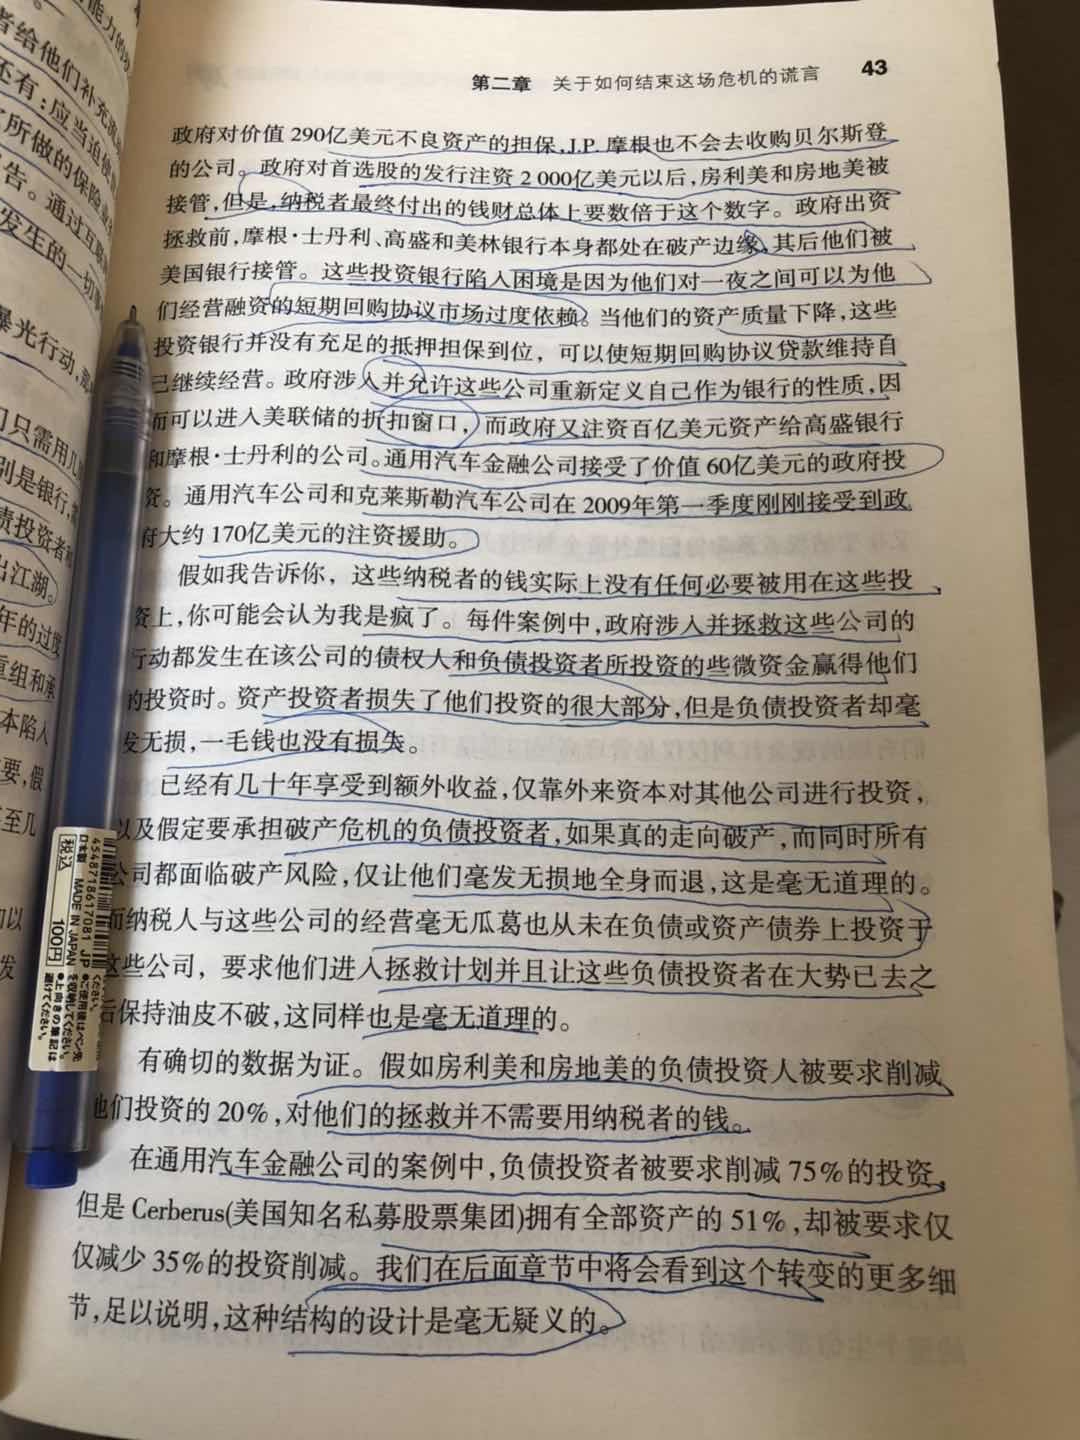 能力的
者给他们补充流
还有：应当迫使
所做的保险业
告。通过互联
发生的一切
曝光行动，
们只需用几
别是银行，
债投资者和
出江湖。
年的过度
重组和承
本陷入
要，假
至几
加以
发
第二章 关于如何结束这场危机的谎言 43
政府对价值290亿美元不良资产的担保，J.P. 摩根也不会去收购贝尔斯登
的公司。政府对首选股的发行注资2 000亿美元以后，房利美和房地美被
接管，但是，纳税者最终付出的钱财总体上要数倍于这个数字。政府出资
拯救前，摩根·士丹利、高盛和美林银行本身都处在破产边缘，其后他们被
美国银行接管。这些投资银行陷入困境是因为他们对一夜之间可以为他
们经营融资的短期回购协议市场过度依赖。当他们的资产质量下降，这些
投资银行并没有充足的抵押担保到位，可以使短期回购协议贷款维持自
己继续经营。政府涉入并允许这些公司重新定义自己作为银行的性质，因
而可以进入美联储的折扣窗口，而政府又注资百亿美元资产给高盛银行
和摩根·士丹利的公司。通用汽车金融公司接受了价值60亿美元的政府投
资。通用汽车公司和克莱斯勒汽车公司在2009年第一季度刚刚接受到政
府大约170亿美元的注资援助。
假如我告诉你，这些纳税者的钱实际上没有任何必要被用在这些投
资上，你可能会认为我是疯了。每件案例中，政府涉入并拯救这些公司的
行动都发生在该公司的债权人和负债投资者所投资的些微资金赢得他们
的投资时。资产投资者损失了他们投资的很大部分，但是负债投资者却毫
发无损，一毛钱也没有损失。
已经有几十年享受到额外收益，仅靠外来资本对其他公司进行投资，
以及假定要承担破产危机的负债投资者，如果真的走向破产，而同时所有
公司都面临破产风险，仅让他们毫发无损地全身而退，这是毫无道理的。
而纳税人与这些公司的经营毫无瓜葛也从未在负债或资产债券上投资于
这些公司，要求他们进入拯救计划并且让这些负债投资者在大势已去之
后保持油皮不破，这同样也是毫无道理的。
有确切的数据为证。假如房利美和房地美的负债投资人被要求削减
他们投资的20%，对他们的拯救并不需要用纳税者的钱。
在通用汽车金融公司的案例中，负债投资者被要求削减75%的投资，
但是Cerberus(美国知名私募股票集团)拥有全部资产的51%，却被要求仅
仅减少35%的投资削减。我们在后面章节中将会看到这个转变的更多细
节，足以说明，这种结构的设计是毫无疑义的。
4548718617081 JP
日本製 MADE IN JAPAN
税込 100円
●ご使用後はペン先
を収納してください。
●上向きの筆記は
避けてください。